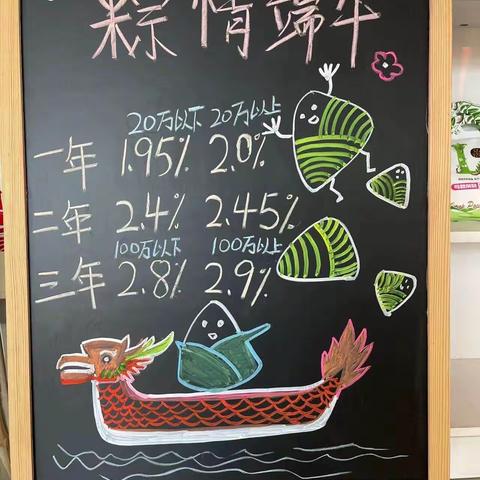 粽情端午
20万以下 20万以上
一年 1.95% 2.0%
二年 2.4% 2.45%
100万以下 100万以上
三年 2.8% 2.9%